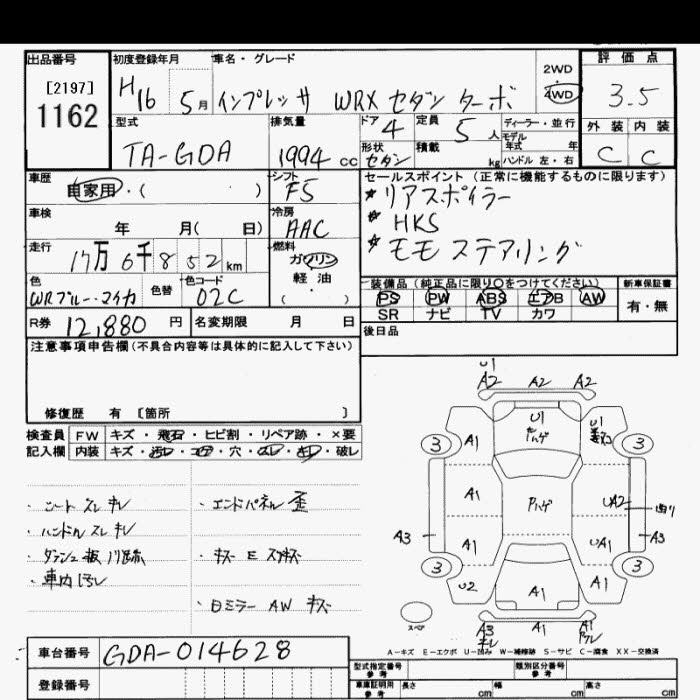 出品番号
[2197]
1162
初度登録年月
H16 5月
車名・グレード
インプレッサ WRX セダン ターボ
2WD
4WD
評価点
3.5
外装 内装
C C
型式
TA-GDA
排気量
1994 cc
ドア 4
形状 セダン
定員 5人
積載 kg
ディーラー・並行
モデル年式 年
ハンドル 左・右
車歴
自家用・( )
シフト
F5
車検
年 月( 日)
冷房
AAC
走行
17万6千852km
燃料
ガソリン
軽油
( ・ )
色
WRブルー・マイカ
色替
色コード
02C
R券 12,880 円
名変期限 月 日
セールスポイント (正常に機能するものに限ります)
* リアスポイラー
* HKS
* モモステアリング
装備品 (純正品に限り○をつけてください)
PS PW ABS エアB AW
SR ナビ TV カワ
新車保証書
有・無
後日品
注意事項申告欄(不具合内容等は具体的に記入して下さい)
修復歴 有 [箇所 ]
検査員記入欄
FW キズ・飛石・ヒビ割・リペア跡・×要
内装 キズ・汚レ・コゲ・穴・スレ・キレ・破レ
・シート スレ キレ
・ハンドル スレ キレ
・車内汚レ
・エンドパネル 歪
・キズ E
・日ミラー AW キズ
U1
A2 A2 A2
U1
ハゲ
U1
3 A1 3
A1
Pハゲ
UA2
A3 A1 UA1 A3
3 3
U2 A1 A1
A3 キレ
A1
A1
スペア
A-キズ E-エクボ U-凹み W-補修跡 S-サビ C-腐食 XX-交換済
車台番号 GDA-014628
登録番号
型式指定番号 参考
類別区分番号 参考
車庫証明用 参考
長さ cm 幅 cm 高さ cm